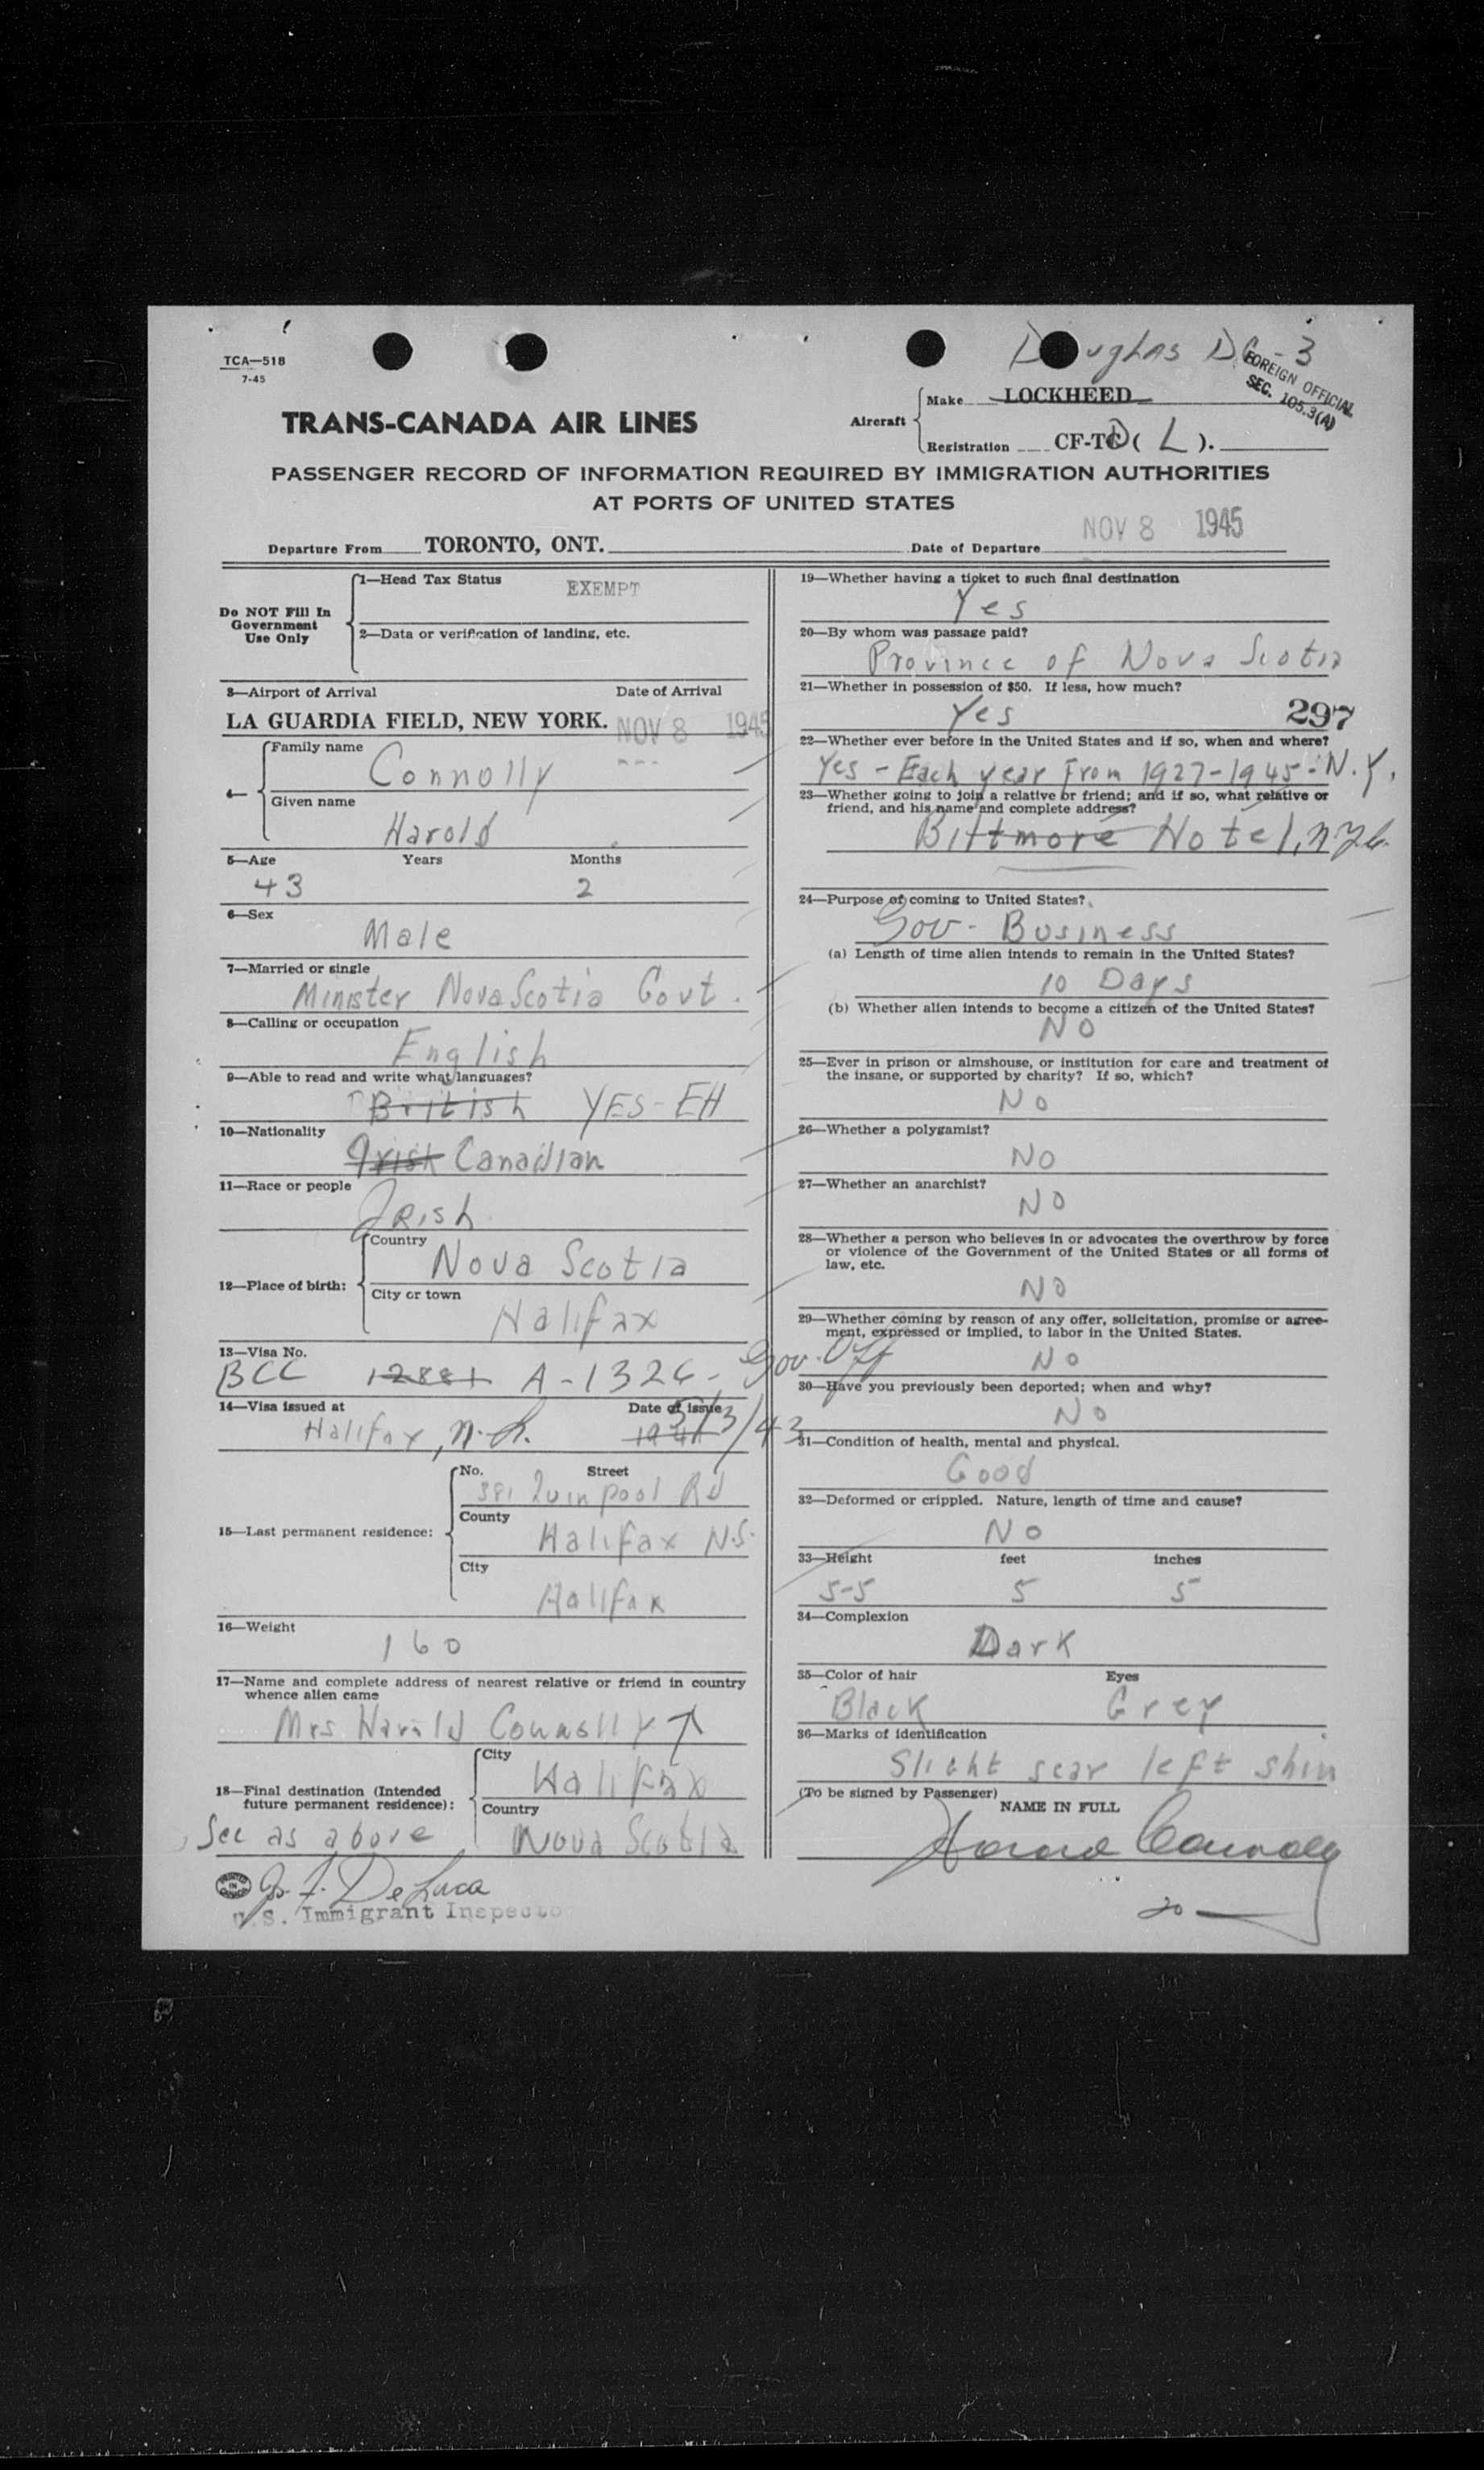 Douglas DC-3
FOREIGN OFFICIAL
SEC. 105.3(A)
TCA—518
7-45
TRANS-CANADA AIR LINES
Aircraft
Make LOCKHEED
Registration CF-TCD ( L ).
PASSENGER RECORD OF INFORMATION REQUIRED BY IMMIGRATION AUTHORITIES
AT PORTS OF UNITED STATES
Departure From TORONTO, ONT. Date of Departure NOV 8 1945
Do NOT Fill In
Government
Use Only
1—Head Tax Status EXEMPT
2—Data or verification of landing, etc.
3—Airport of Arrival Date of Arrival
LA GUARDIA FIELD, NEW YORK. NOV 8 1945
4—
Family name
Connolly
Given name
Harold
5—Age Years Months
43 2
6—Sex
Male
7—Married or single
Minister Nova Scotia Govt.
8—Calling or occupation
English
9—Able to read and write what languages?
British YES-EH
10—Nationality
Irish Canadian
11—Race or people
Irish
12—Place of birth:
Country
Nova Scotia
City or town
Halifax
13—Visa No.
BCC 12881 A-1326- Gov. Off
14—Visa issued at Date of issue
Halifax, N.S. 5/3/43
15—Last permanent residence:
No. Street
381 Quinpool Rd
County
Halifax N.S.
City
Halifax
16—Weight
160
17—Name and complete address of nearest relative or friend in country
whence alien came
Mrs Harold Connolly ↑
18—Final destination (Intended
future permanent residence):
See as above
City
Halifax
Country
Nova Scotia
PRINTED IN CANADA
J. F. De Luca
U.S. Immigrant Inspector
19—Whether having a ticket to such final destination
Yes
20—By whom was passage paid?
Province of Nova Scotia
21—Whether in possession of $50. If less, how much?
Yes 297
22—Whether ever before in the United States and if so, when and where?
Yes - Each year From 1927-1945 - N.Y.
23—Whether going to join a relative or friend; and if so, what relative or
friend, and his name and complete address?
Biltmore Hotel, NYC.
24—Purpose of coming to United States?
Gov- Business
(a) Length of time alien intends to remain in the United States?
10 Days
(b) Whether alien intends to become a citizen of the United States?
NO
25—Ever in prison or almshouse, or institution for care and treatment of
the insane, or supported by charity? If so, which?
No
26—Whether a polygamist?
NO
27—Whether an anarchist?
NO
28—Whether a person who believes in or advocates the overthrow by force
or violence of the Government of the United States or all forms of
law, etc.
NO
29—Whether coming by reason of any offer, solicitation, promise or agree-
ment, expressed or implied, to labor in the United States.
No
30—Have you previously been deported; when and why?
No
31—Condition of health, mental and physical.
Good
32—Deformed or crippled. Nature, length of time and cause?
No
33—Height feet inches
5-5 5 5
34—Complexion
Dark
35—Color of hair Eyes
Black Grey
36—Marks of identification
Slight scar left shin
(To be signed by Passenger)
NAME IN FULL
Harold Connolly
20